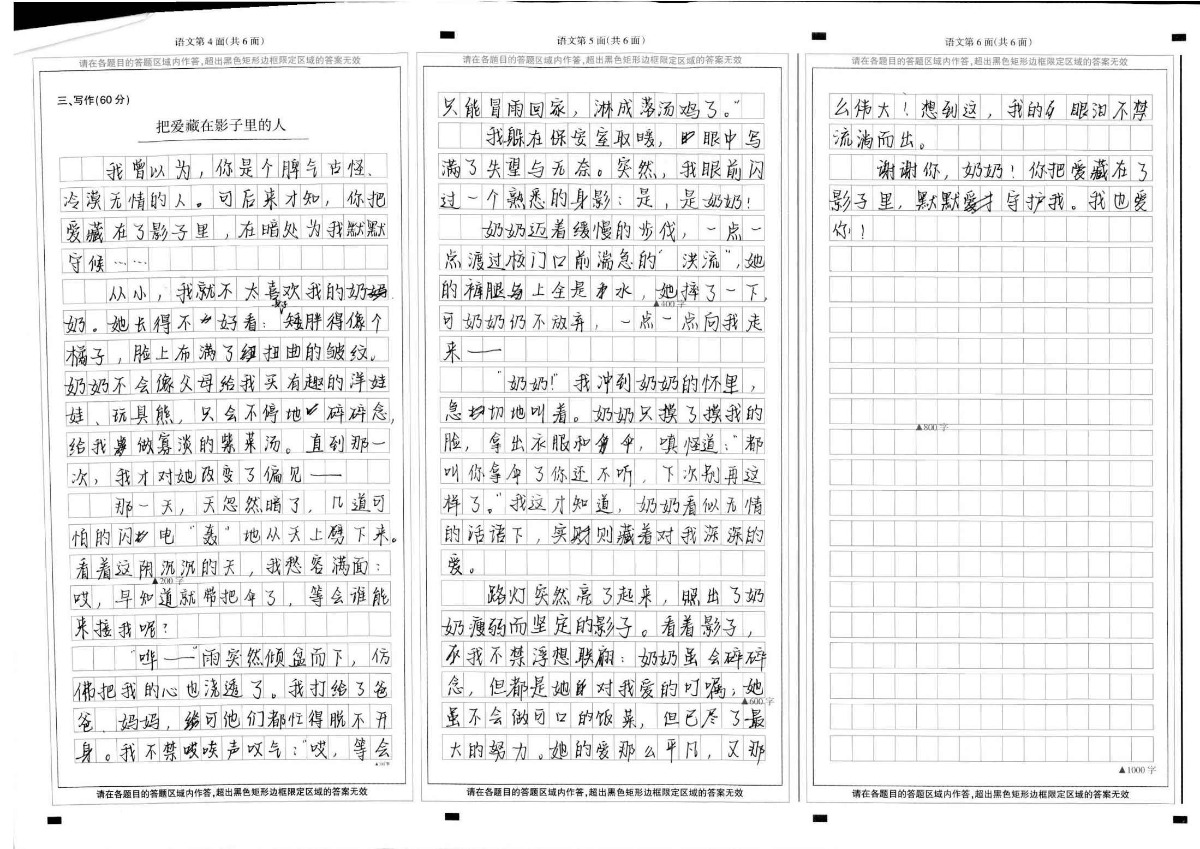 语文第4面(共6面)
请在各题目的答题区域内作答,超出黑色矩形边框限定区域的答案无效
三、写作(60分)
把爱藏在影子里的人
我曾以为，你是个脾气古怪、
冷漠无情的人。可后来才知，你把
爱藏在了影子里，在暗处为我默默
守候……
从小，我就不太喜欢我的奶
奶。她长得不好看：矮胖得像个
橘子，脸上布满了扭曲的皱纹。
奶奶不会像父母给我买有趣的洋娃
娃、玩具熊，只会不停地碎碎念，
给我做寡淡的紫菜汤。直到那一
次，我才对她改变了偏见——
那一天，天忽然暗了，几道可
怕的闪电“轰”地从天上劈下来。
看着这阴沉沉的天，我愁容满面：
▲200字
哎，早知道就带把伞了，等会谁能
来接我呢？
“哗——”雨突然倾盆而下，仿
佛把我的心也浇透了。我打给了爸
爸、妈妈，可他们都忙得脱不开
身。我不禁唉唉声叹气：“哎，等会
请在各题目的答题区域内作答,超出黑色矩形边框限定区域的答案无效
语文第5面(共6面)
请在各题目的答题区域内作答,超出黑色矩形边框限定区域的答案无效
只能冒雨回家，淋成落汤鸡了。”
我躲在保安室取暖，眼中写
满了失望与无奈。突然，我眼前闪
过一个熟悉的身影：是，是奶奶！
奶奶迈着缓慢的步伐，一点一
点渡过校门口前湍急的“洪流”，她
的裤腿上全是水，她摔了一下，
▲400字
可奶奶仍不放弃，一点一点向我走
来——
“奶奶！”我冲到奶奶的怀里，
急切地叫着。奶奶只摸了摸我的
脸，拿出衣服和伞，嗔怪道：“都
叫你拿伞了你还不听，下次别再这
样了。”我这才知道，奶奶看似无情
的话语下，实则藏着对我深深的
爱。
路灯突然亮了起来，照出了奶
奶瘦弱而坚定的影子。看着影子，
我不禁浮想联翩：奶奶虽会碎碎
念，但都是她对我爱的叮嘱；她
▲600字
虽不会做可口的饭菜，但已尽了最
大的努力。她的爱那么平凡，又那
请在各题目的答题区域内作答,超出黑色矩形边框限定区域的答案无效
语文第6面(共6面)
请在各题目的答题区域内作答,超出黑色矩形边框限定区域的答案无效
么伟大！想到这，我的眼泪不禁
流淌而出。
谢谢你，奶奶！你把爱藏在了
影子里，默默守护我。我也爱
你！
▲800字
▲1000字
请在各题目的答题区域内作答,超出黑色矩形边框限定区域的答案无效